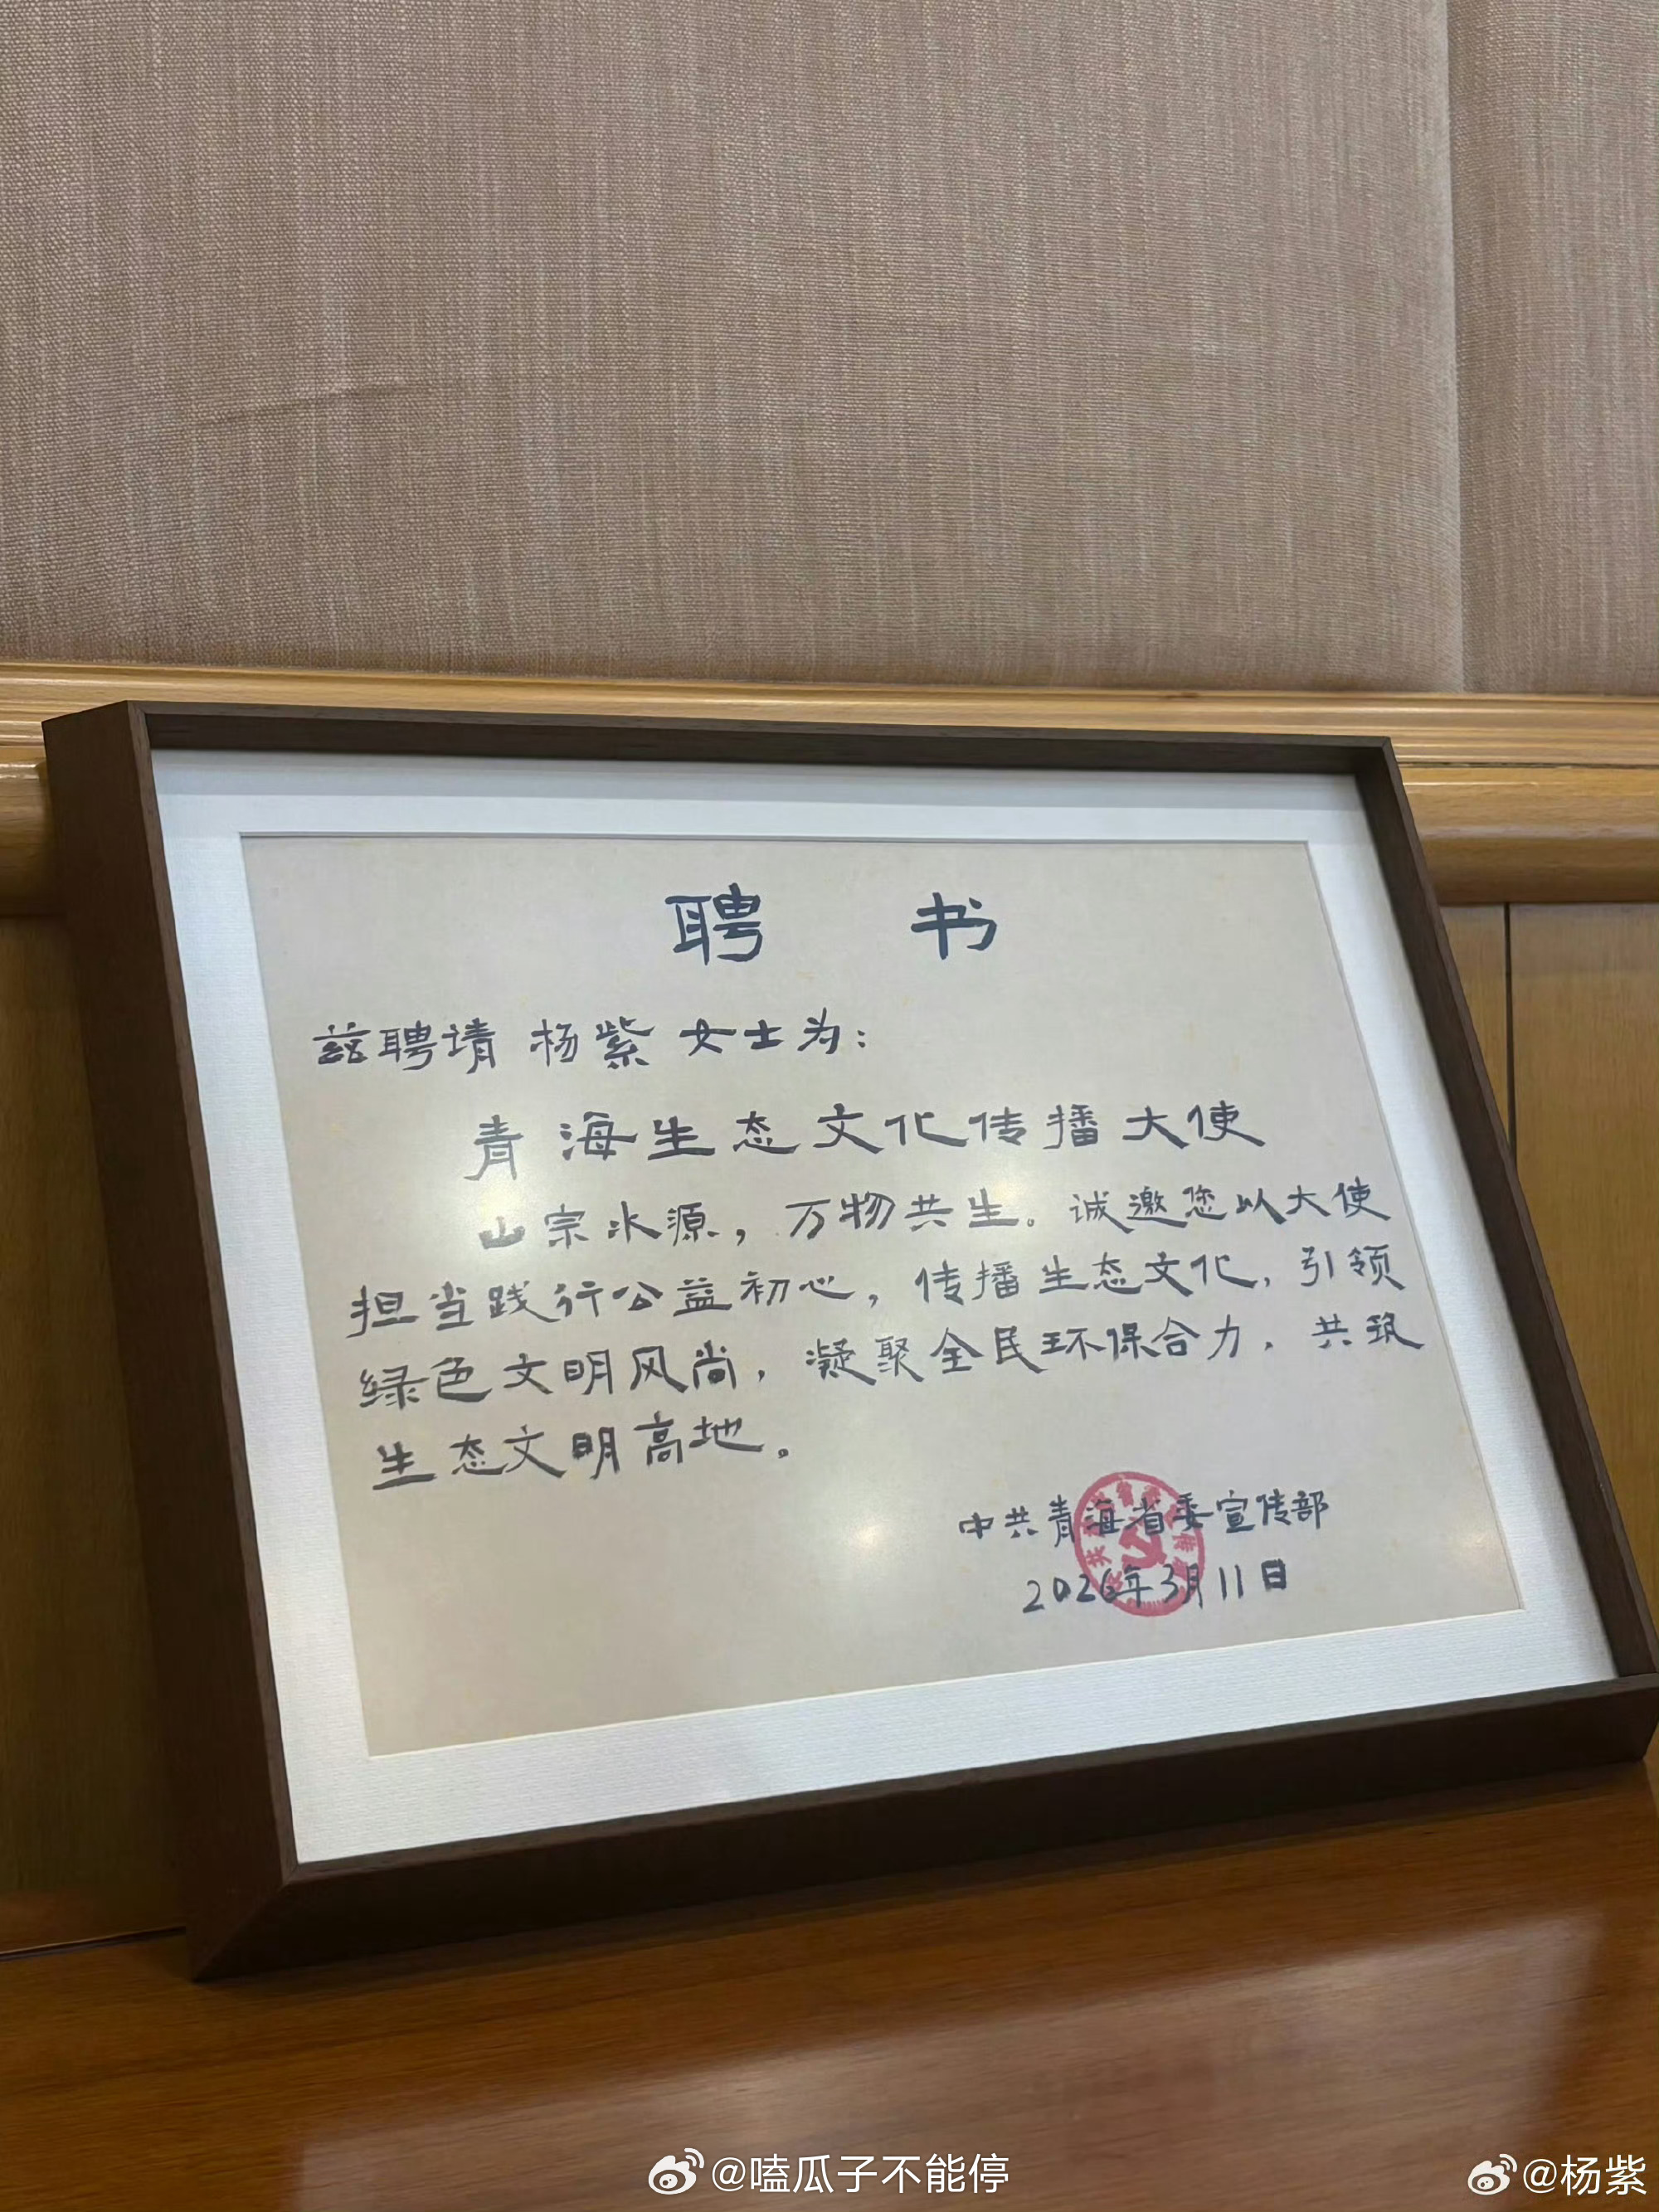 聘 书
兹聘请 杨紫 女士为：
青海生态文化传播大使
山宗水源，万物共生。诚邀您以大使
担当践行公益初心，传播生态文化，引领
绿色文明风尚，凝聚全民环保合力，共筑
生态文明高地。
中共青海省委宣传部
2026年3月11日
@嗑瓜子不能停
@杨紫